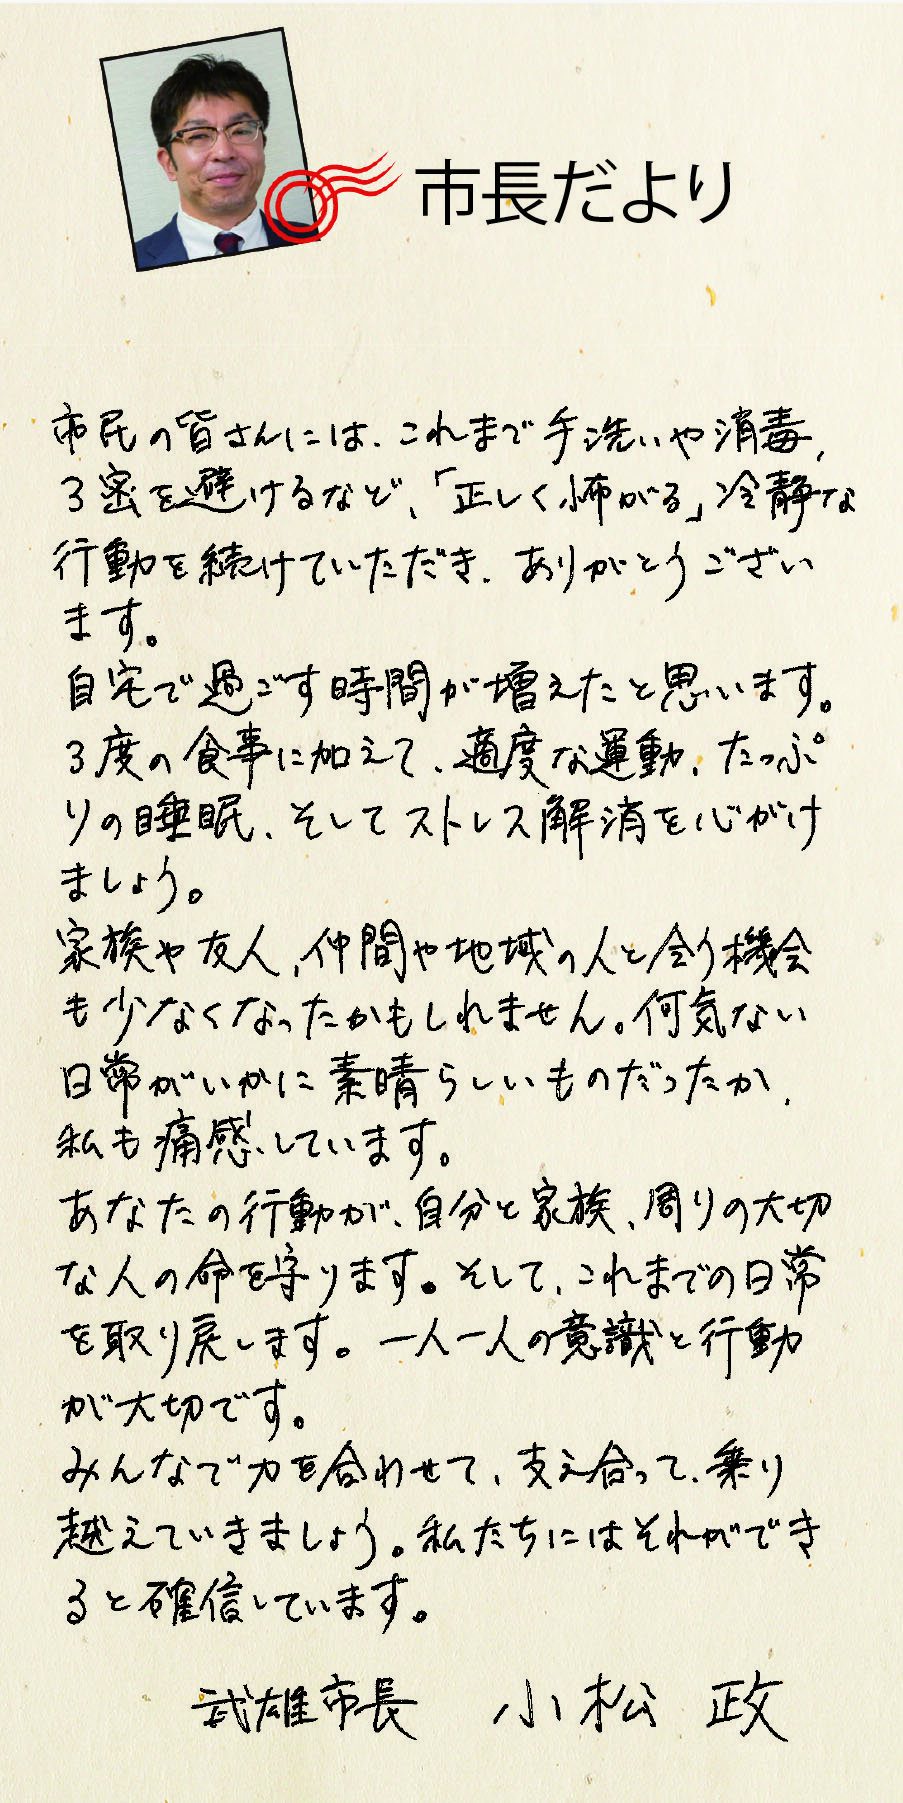 市長だより
市民の皆さんには、これまで手洗いや消毒、
3密を避けるなど、「正しく怖がる」冷静な
行動を続けていただき、ありがとうござい
ます。
自宅で過ごす時間が増えたと思います。
3度の食事に加えて、適度な運動、たっぷ
りの睡眠、そしてストレス解消を心がけ
ましょう。
家族や友人、仲間や地域の人と会う機会
も少なくなったかもしれません。何気ない
日常がいかに素晴らしいものだったか、
私も痛感しています。
あなたの行動が、自分と家族、周りの大切
な人の命を守ります。そして、これまでの日常
を取り戻します。一人一人の意識と行動
が大切です。
みんなで力を合わせて、支え合って、乗り
越えていきましょう。私たちにはそれができ
ると確信しています。
武雄市長 小松 政